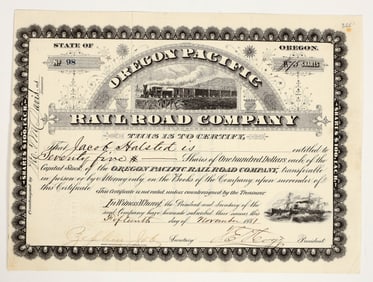 STATE OF OREGON.
Nº 98 SHARES
OREGON PACIFIC
RAIL ROAD COMPANY
THIS IS TO CERTIFY,
That Jacob Halsted is entitled to
Seventy five Shares of One hundred Dollars each of the
Capital Stock of the OREGON PACIFIC RAIL ROAD COMPANY, transferable
in person or by Attorney only on the Books of the Company upon surrender of
this Certificate.
This Certificate is not valid unless countersigned by the Treasurer
In Witness Whereof, the President and Secretary of the
said Company have hereunto subscribed their names this
Fifteenth day of November
Secretary President